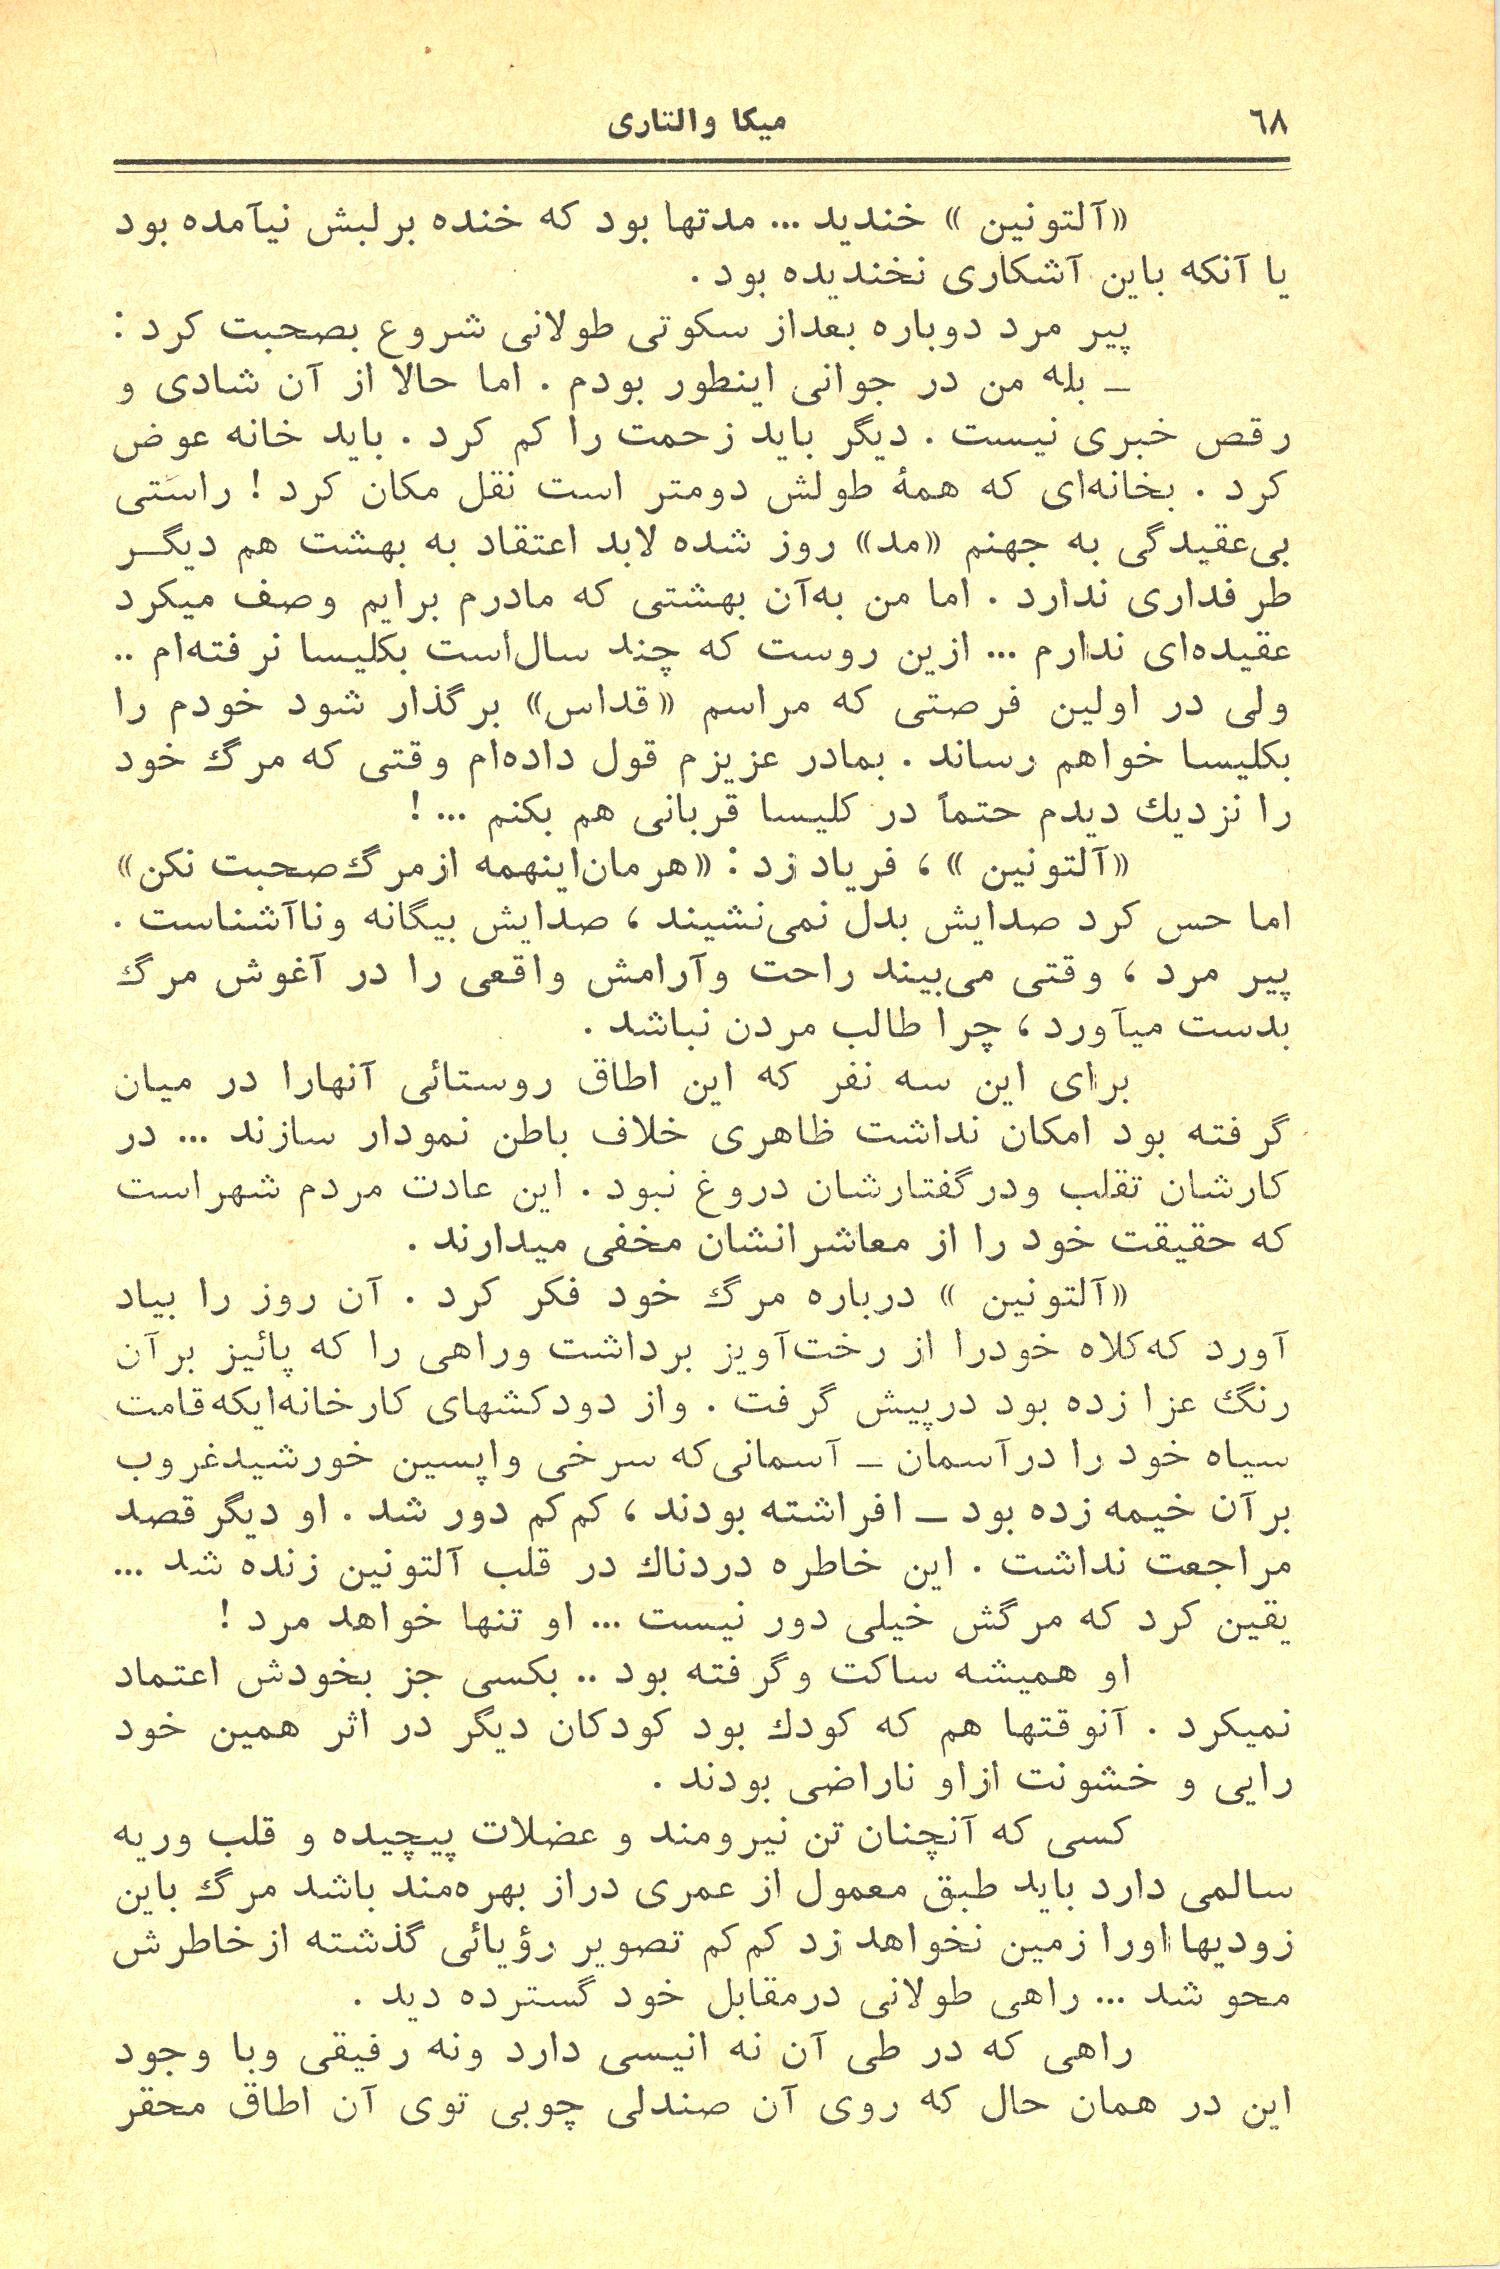 ٦٨
میکا والتاری
«آلتونین» خندید ... مدتها بود که خنده برلبش نیآمده بود
یا آنکه باین آشکاری نخندیده بود .
پیر مرد دوباره بعداز سکوتی طولانی شروع بصحبت کرد :
ـ بله من در جوانی اینطور بودم . اما حالا از آن شادی و
رقص خبری نیست . دیگر باید زحمت را کم کرد . باید خانه عوض
کرد . بخانه‌ای که همهٔ طولش دومتر است نقل مکان کرد ! راستی
بی‌عقیدگی به جهنم «مد» روز شده لابد اعتقاد به بهشت هم دیگـر
طرفداری ندارد . اما من به‌آن بهشتی که مادرم برایم وصف میکرد
عقیده‌ای ندارم ... ازین روست که چند سال‌است بکلیسا نرفته‌ام ..
ولی در اولین فرصتی که مراسم «قداس» برگذار شود خودم را
بکلیسا خواهم رساند . بمادر عزیزم قول داده‌ام وقتی که مرگ خود
را نزدیك دیدم حتماً در کلیسا قربانی هم بکنم ... !
«آلتونین» ، فریاد زد : «هرمان‌اینهمه ازمرگ‌صحبت نکن»
اما حس کرد صدایش بدل نمی‌نشیند ، صدایش بیگانه وناآشناست .
پیر مرد ، وقتی می‌بیند راحت وآرامش واقعی را در آغوش مرگ
بدست میآورد ، چرا طالب مردن نباشد .
برای این سه نفر که این اطاق روستائی آنهارا در میان
گرفته بود امکان نداشت ظاهری خلاف باطن نمودار سازند ... در
کارشان تقلب ودرگفتارشان دروغ نبود . این عادت مردم شهراست
که حقیقت خود را از معاشرانشان مخفی میدارند .
«آلتونین» درباره مرگ خود فکر کرد . آن روز را بیاد
آورد که‌کلاه خودرا از رخت‌آویز برداشت وراهی را که پائیز برآن
رنگ عزا زده بود درپیش گرفت . واز دودکشهای کارخانه‌ایکه‌قامت
سیاه خود را درآسمان ـ آسمانی‌که سرخی واپسین خورشیدغروب
برآن خیمه زده بود ـ افراشته بودند ، کم‌کم دور شد . او دیگر قصد
مراجعت نداشت . این خاطره دردناك در قلب آلتونین زنده شد ...
یقین کرد که مرگش خیلی دور نیست ... او تنها خواهد مرد !
او همیشه ساکت وگرفته بود .. بکسی جز بخودش اعتماد
نمیکرد . آنوقتها هم که کودك بود کودکان دیگر در اثر همین خود
رایی و خشونت ازاو ناراضی بودند .
کسی که آنچنان تن نیرومند و عضلات پیچیده و قلب وریه
سالمی دارد باید طبق معمول از عمری دراز بهره‌مند باشد مرگ باین
زودیها اورا زمین نخواهد زد کم‌کم تصویر رؤیائی گذشته ازخاطرش
محو شد ... راهی طولانی درمقابل خود گسترده دید .
راهی که در طی آن نه انیسی دارد ونه رفیقی وبا وجود
این در همان حال که روی آن صندلی چوبی توی آن اطاق محقر